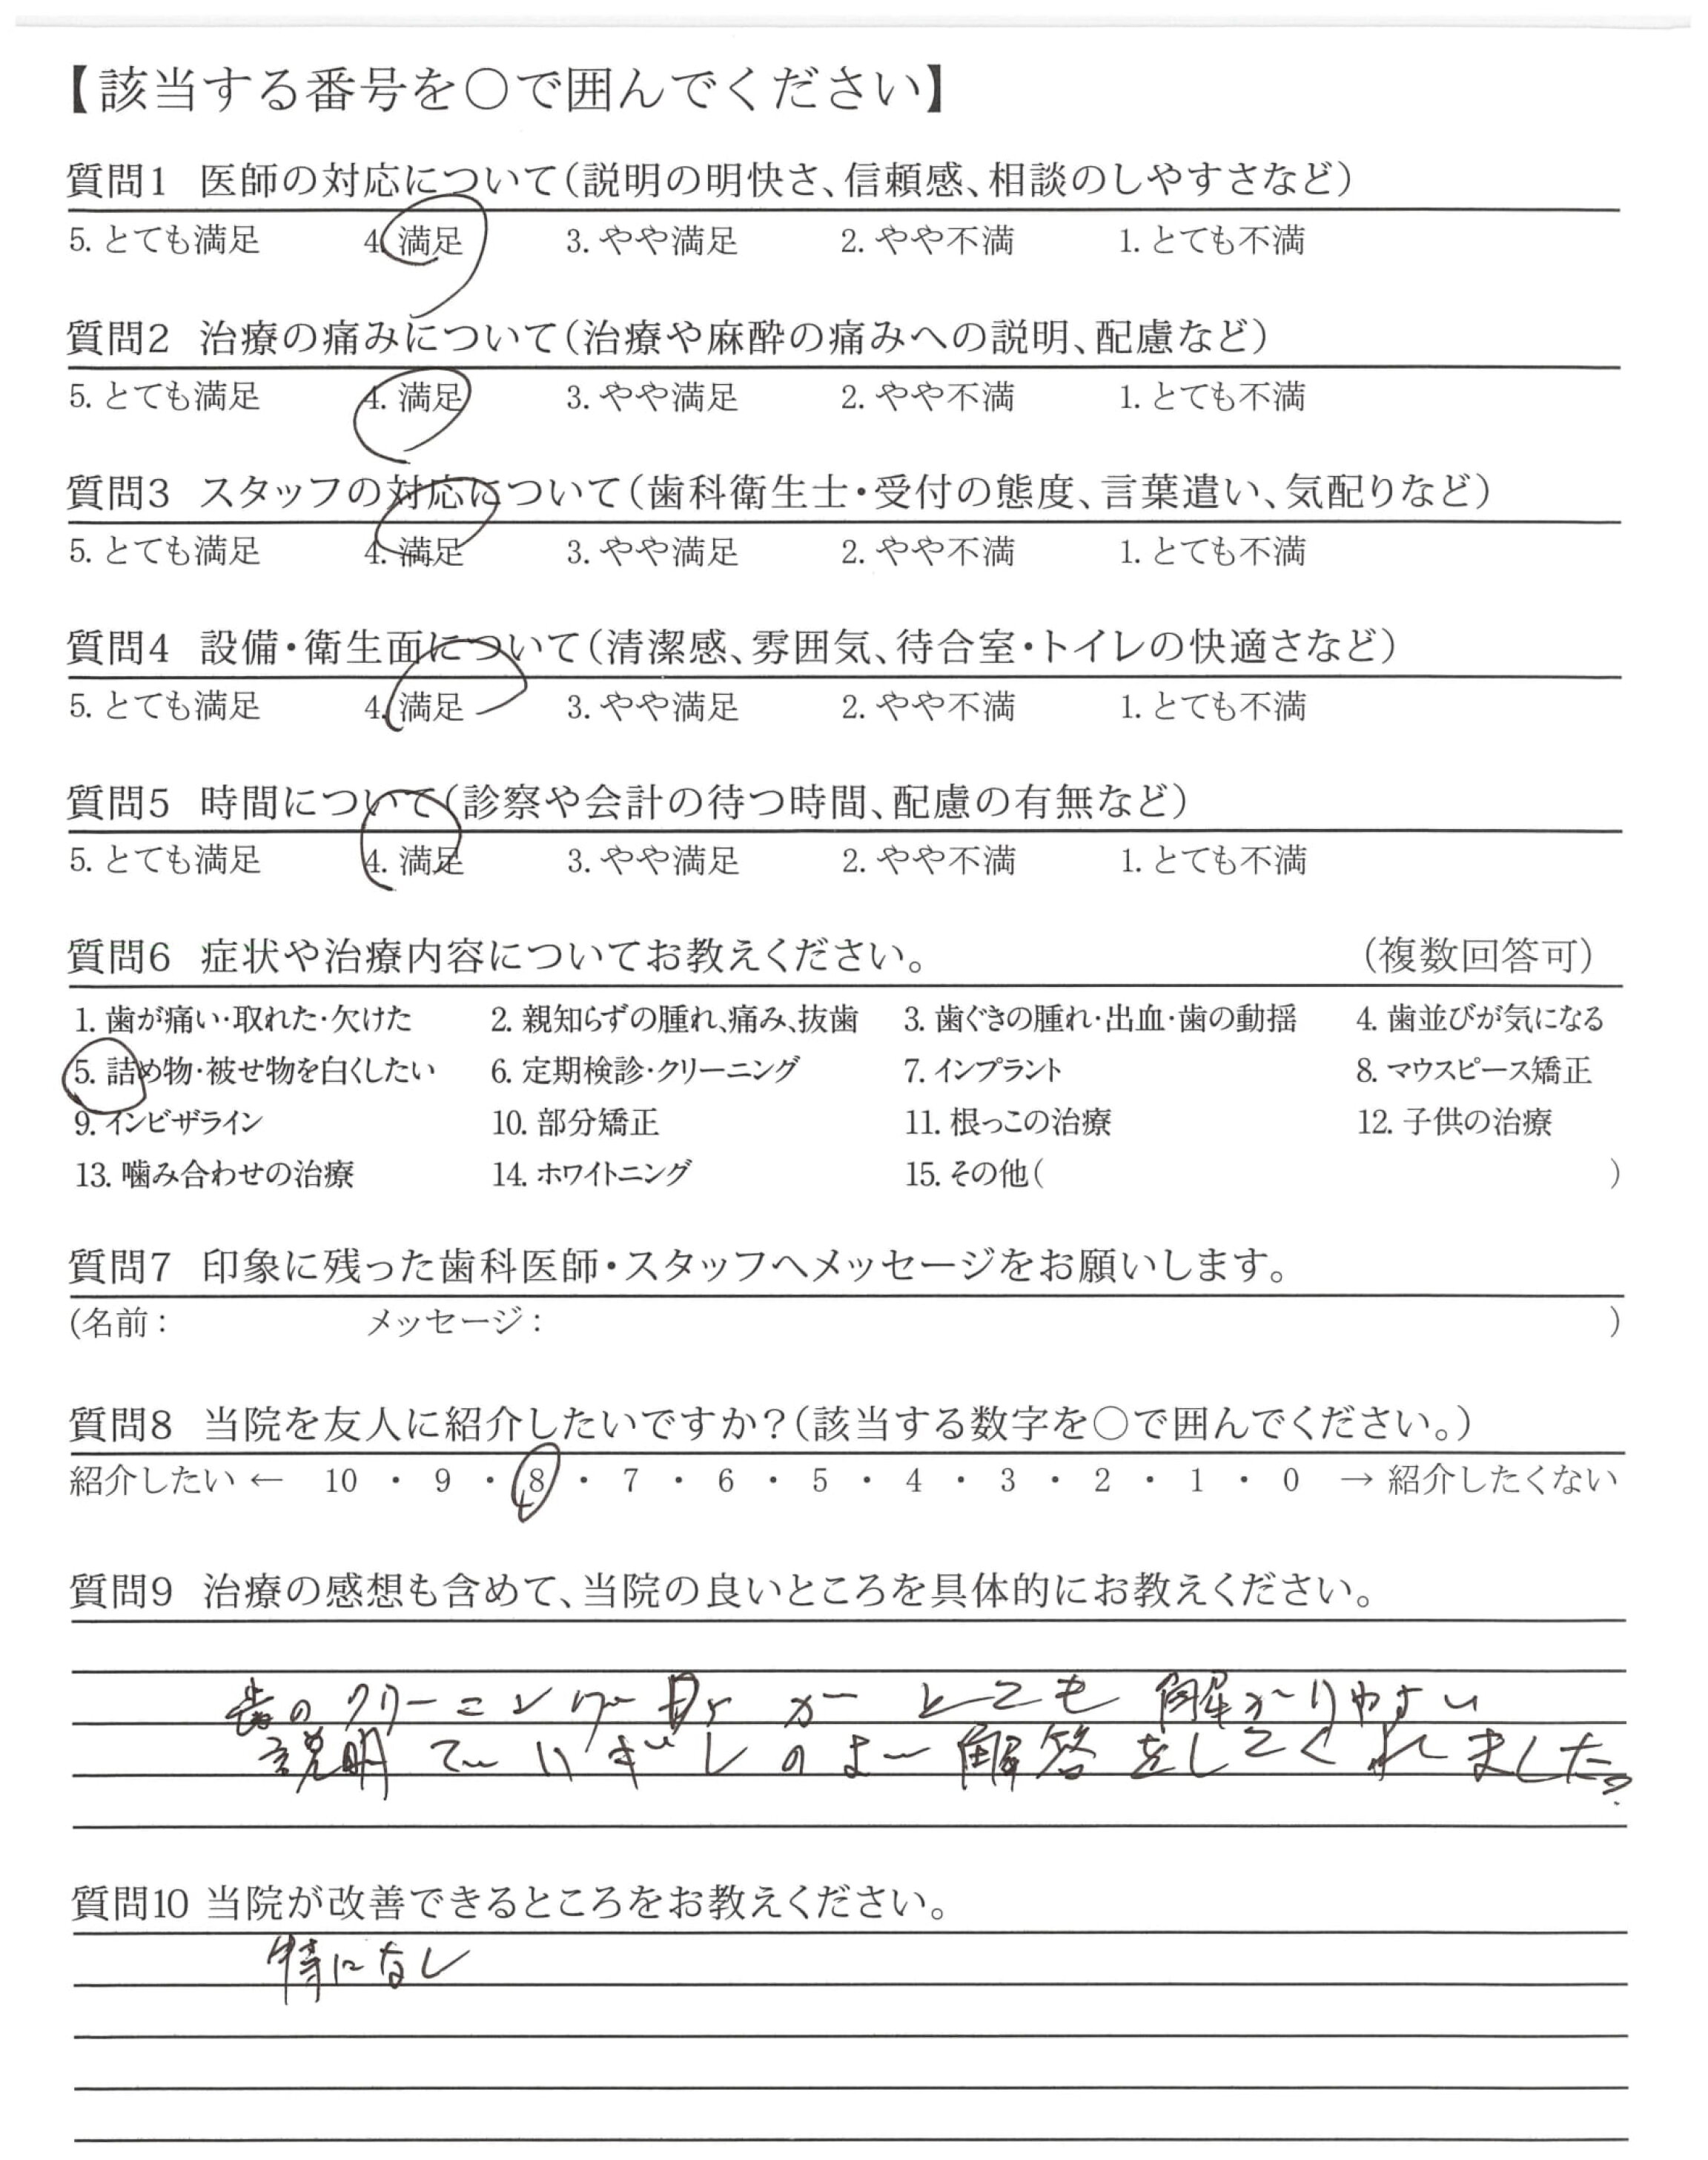 【該当する番号を○で囲んでください】
質問1 医師の対応について(説明の明快さ、信頼感、相談のしやすさなど)
5. とても満足 4. 満足 3. やや満足 2. やや不満 1. とても不満
質問2 治療の痛みについて(治療や麻酔の痛みへの説明、配慮など)
5. とても満足 4. 満足 3. やや満足 2. やや不満 1. とても不満
質問3 スタッフの対応について(歯科衛生士・受付の態度、言葉遣い、気配りなど)
5. とても満足 4. 満足 3. やや満足 2. やや不満 1. とても不満
質問4 設備・衛生面について(清潔感、雰囲気、待合室・トイレの快適さなど)
5. とても満足 4. 満足 3. やや満足 2. やや不満 1. とても不満
質問5 時間について(診察や会計の待つ時間、配慮の有無など)
5. とても満足 4. 満足 3. やや満足 2. やや不満 1. とても不満
質問6 症状や治療内容についてお教えください。 (複数回答可)
1. 歯が痛い・取れた・欠けた 2. 親知らずの腫れ、痛み、抜歯 3. 歯ぐきの腫れ・出血・歯の動揺 4. 歯並びが気になる
5. 詰め物・被せ物を白くしたい 6. 定期検診・クリーニング 7. インプラント 8. マウスピース矯正
9. インビザライン 10. 部分矯正 11. 根っこの治療 12. 子供の治療
13. 噛み合わせの治療 14. ホワイトニング 15. その他( )
質問7 印象に残った歯科医師・スタッフへメッセージをお願いします。
(名前: メッセージ: )
質問8 当院を友人に紹介したいですか?(該当する数字を○で囲んでください。)
紹介したい ← 10 ・ 9 ・ 8 ・ 7 ・ 6 ・ 5 ・ 4 ・ 3 ・ 2 ・ 1 ・ 0 → 紹介したくない
質問9 治療の感想も含めて、当院の良いところを具体的にお教えください。
歯のクリーニング とても 解かりやすい
説明で 解答をしてくれました。
質問10 当院が改善できるところをお教えください。
特になし